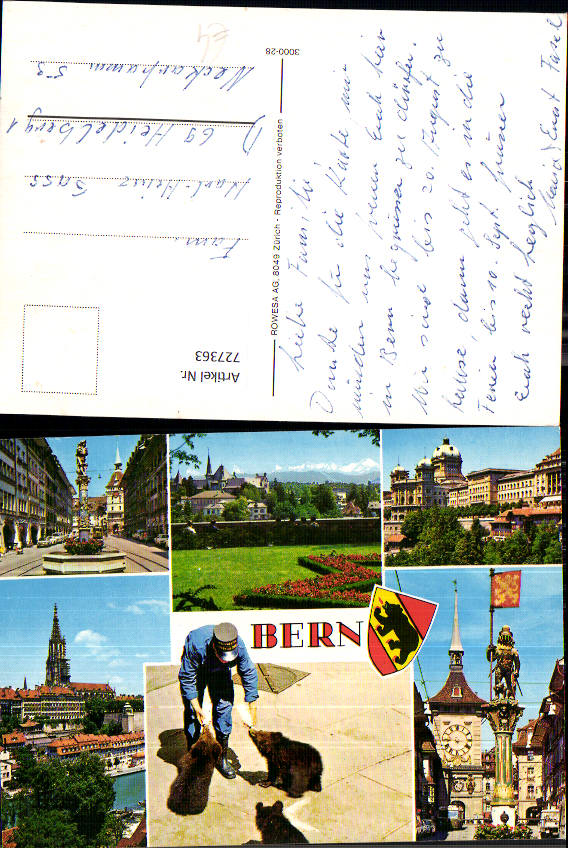 Liebe Fam. 
Danke für die Karte, wir
würden uns freuen Euch hier
in Bern begrüssen zu dürfen.
Wir sind bis 20. August zu
hause, dann geht es in die
Ferien bis 10. Sept. 
Euch recht herzlich
Maria & Ernst
ROWESA AG, 8049 Zürich - Reproduktion verboten
3000-28
Fam.
Karl-Heinz Sass
D 69 Heidelberg 1
53
Artikel Nr.
727363
BERN